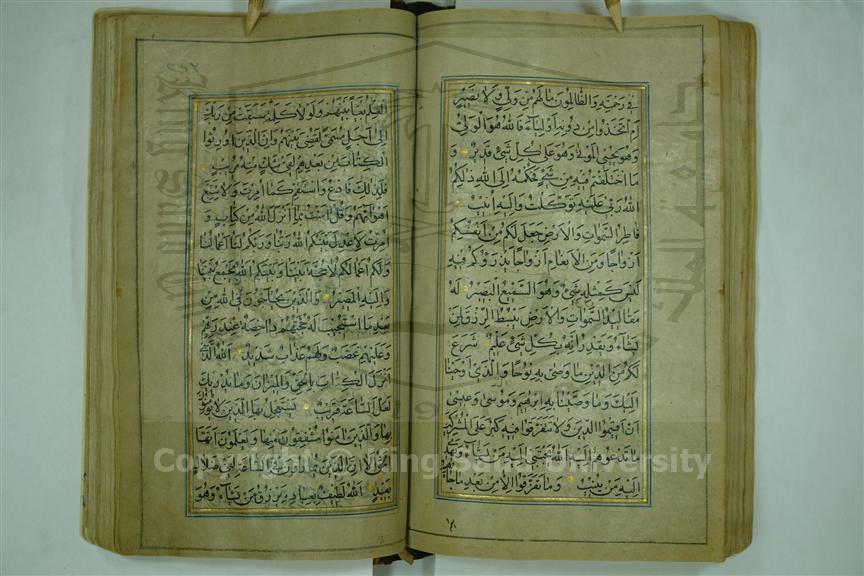 في رحمته والظالمون ما لهم من ولي ولا نصير
ام اتخذوا من دونه اولياء فالله هو الولي
وهو يحيي الموتى وهو على كل شئ قدير و
ما اختلفتم فيه من شئ فحكمه الى الله ذلكم
الله ربي عليه توكلت واليه انيب
فاطر السموات والارض جعل لكم من انفسكم
ازواجا ومن الانعام ازواجا يذرؤكم فيه
ليس كمثله شئ وهو السميع البصير له
مقاليد السموات والارض يبسط الرزق لمن
يشاء ويقدر انه بكل شئ عليم شرع
لكم من الدين ما وصى به نوحا والذي اوحينا
اليك وما وصينا به ابرهيم وموسى وعيسى
ان اقيموا الدين ولا تتفرقوا فيه كبر على المشركين
ما تدعوهم اليه الله يجتبي اليه من يشاء ويهدي
اليه من ينيب وما تفرقوا الا من بعد ما جاءهم
العلم بغيا بينهم ولولا كلمة سبقت من ربك
الى اجل مسمى لقضي بينهم وان الذين اورثوا
الكتاب من بعدهم لفي شك منه مريب
فلذلك فادع واستقم كما امرت ولا تتبع
اهواءهم وقل امنت بما انزل الله من كتاب و
امرت لاعدل بينكم الله ربنا وربكم لنا اعمالنا
ولكم اعمالكم لا حجة بيننا وبينكم الله يجمع بيننا
واليه المصير والذين يحاجون في الله من
بعد ما استجيب له حجتهم داحضة عند ربهم
وعليهم غضب ولهم عذاب شديد الله الذي
انزل الكتاب بالحق والميزان وما يدريك
لعل الساعة قريب يستعجل بها الذين لا يؤمنون
بها والذين امنوا مشفقون منها ويعلمون انها
الحق الا ان الذين يمارون في الساعة لفي ضلال
بعيد الله لطيف بعباده يرزق من يشاء وهو
Copyright © King Saud University